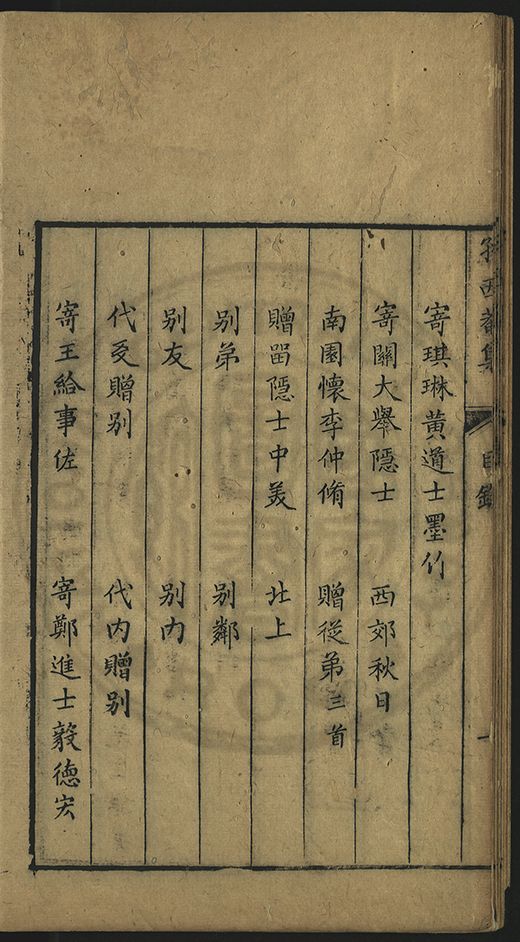 孫西菴集 目錄 一
寄琪琳黃道士墨竹
寄關大舉隱士 西郊秋日
南園懷李仲脩 贈從弟三首
贈畱隱士中美 北上
别弟 别鄰
别友 别内
代友贈别 代内贈别
寄王給事佐 寄鄭進士毅德宏